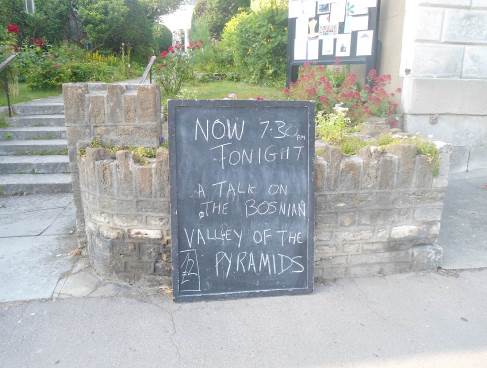 NOW 7-30PM
TONIGHT
A TALK ON
THE BOSNIAN
VALLEY OF THE
PYRAMIDS